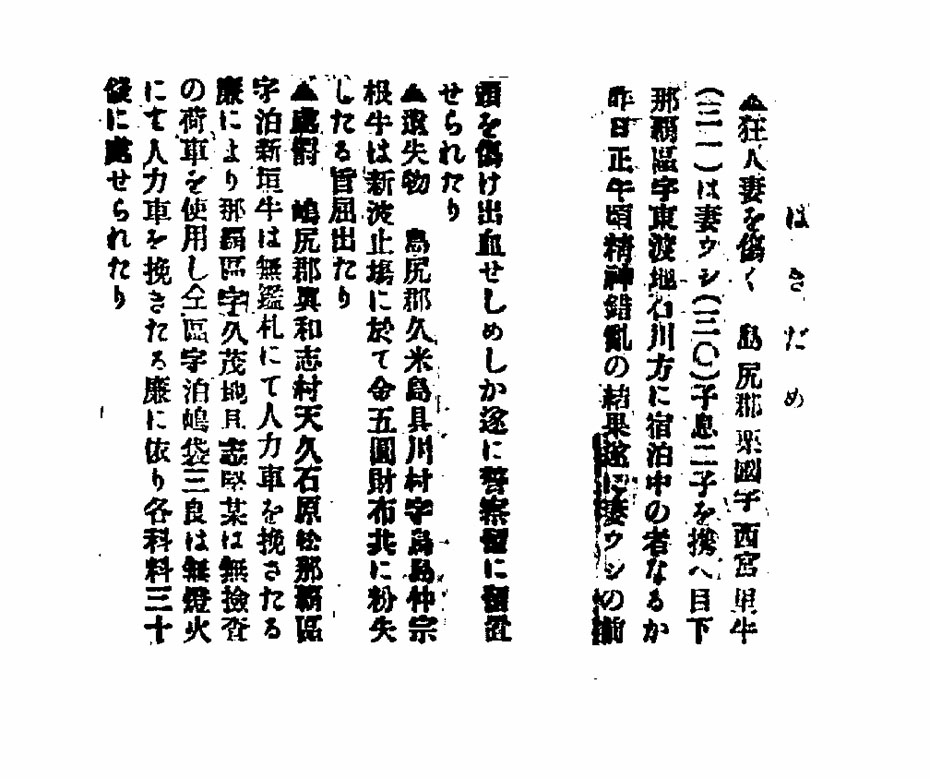 はきだめ
▲狂人妻を傷く　島尻郡粟國字西宮里牛
(三一)は妻ウシ(三〇)子息二子を携へ目下
那覇區字東渡地石川方に宿泊中の者なるか
昨日正午頃精神錯亂の結果遂に妻ウシの前
頭を傷け出血せしめしか遂に警察署に留置
せられたり
▲遺失物　島尻郡久米島具川村字鳥島仲宗
根牛は新波止塲に於て金五圓財布共に粉失
したる旨屆出たり
▲處罰　嶋尻郡眞和志村天久石原松那覇區
字泊新垣牛は無鑑札にて人力車を挽きたる
廉により那覇區字久茂地具志堅某は無撿査
の荷車を使用し仝區字泊嶋袋三良は無燈火
にて人力車を挽きたる廉に依り各科料三十
錢に處せられたり